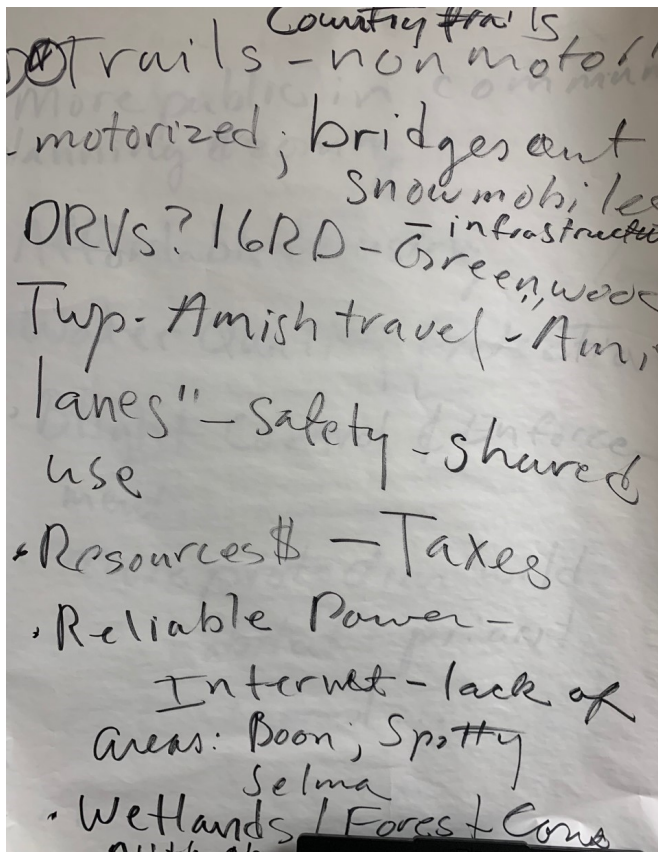 Country trails
Trails - non motor
- motorized; bridges out
snowmobiles
ORVs? 16RD - - infrastructu
Greenwood
Twp. Amish travel - "Ami
lanes" - Safety - shared
use
• Resources $ - Taxes
• Reliable Power -
Internet - lack of
areas: Boon; Spotty
Selma
• Wetlands / Forest Cons